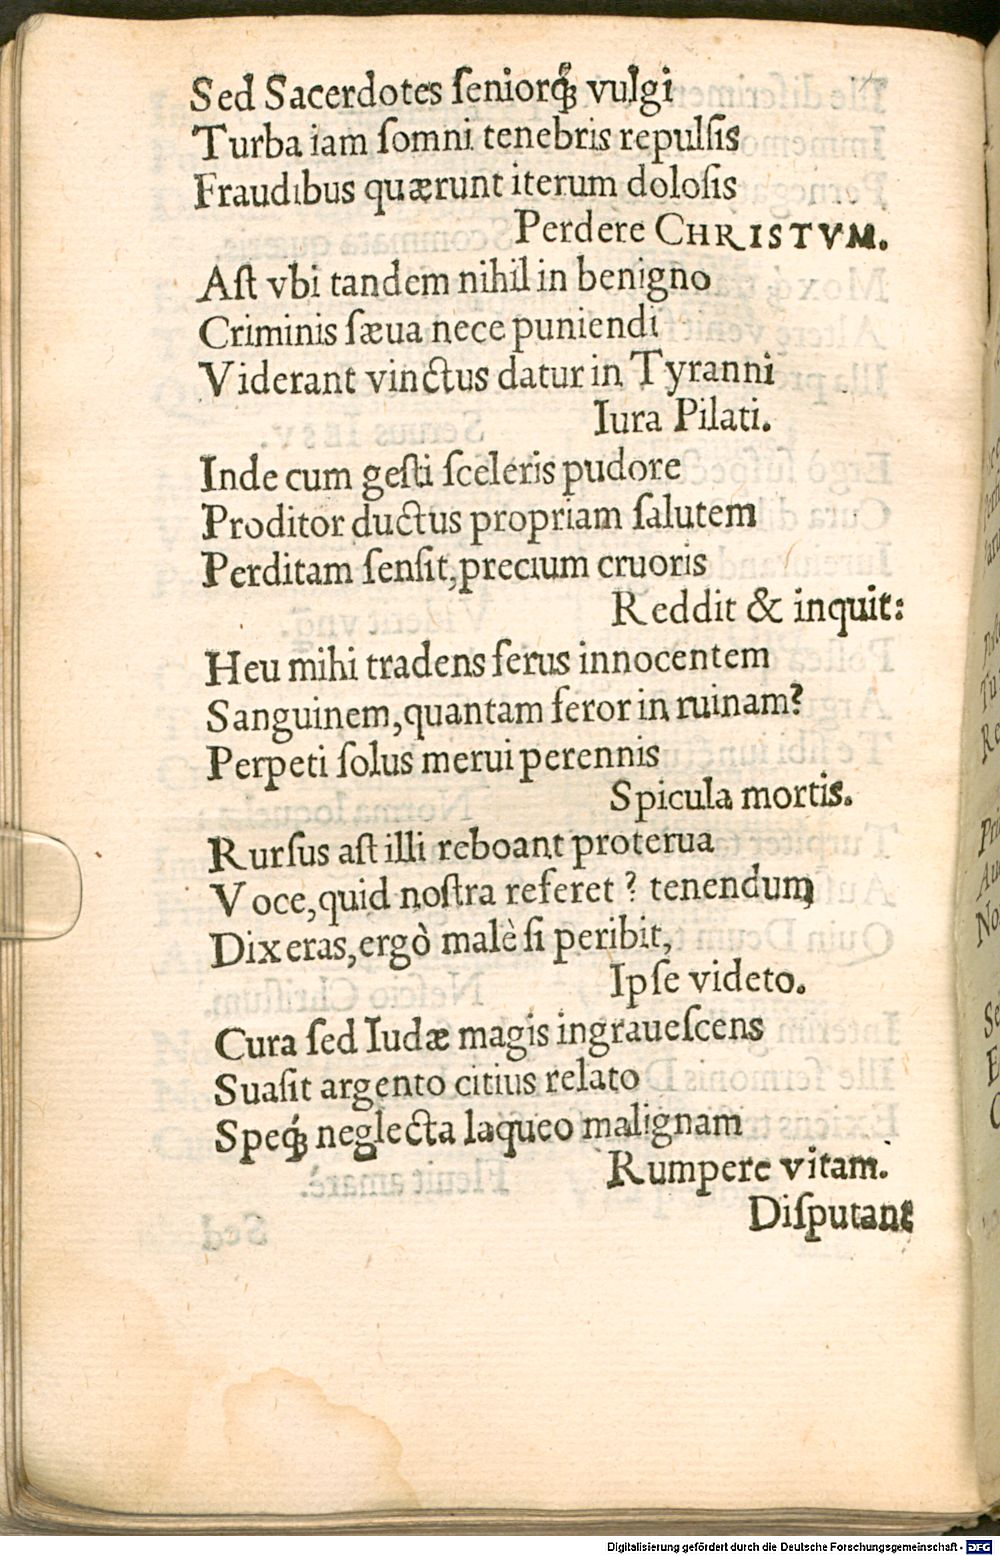 Sed Sacerdotes ſeniorq́ꝫ vulgi
Turba iam ſomni tenebris repulſis
Fraudibus quærunt iterum doloſis
Perdere CHRISTVM.
Aſt vbi tandem nihil in benigno
Criminis ſæua nece puniendi
Viderant vinctus datur in Tyranni
Iura Pilati.
Inde cum geſti ſceleris pudore
Proditor ductus propriam ſalutem
Perditam ſenſit, precium cruoris
Reddit & inquit:
Heu mihi tradens ferus innocentem
Sanguinem, quantam feror in ruinam?
Perpeti ſolus merui perennis
Spicula mortis.
Rurſus aſt illi reboant proterua
Voce, quid noſtra referet? tenendum
Dixeras, ergò malè ſi peribit,
Ipſe videto.
Cura ſed Iudæ magis ingraueſcens
Suaſit argento citius relato
Speq́ꝫ neglecta laqueo malignam
Rumpere vitam.
Diſputant
Digitalisierung gefördert durch die Deutsche Forschungsgemeinschaft - DFG